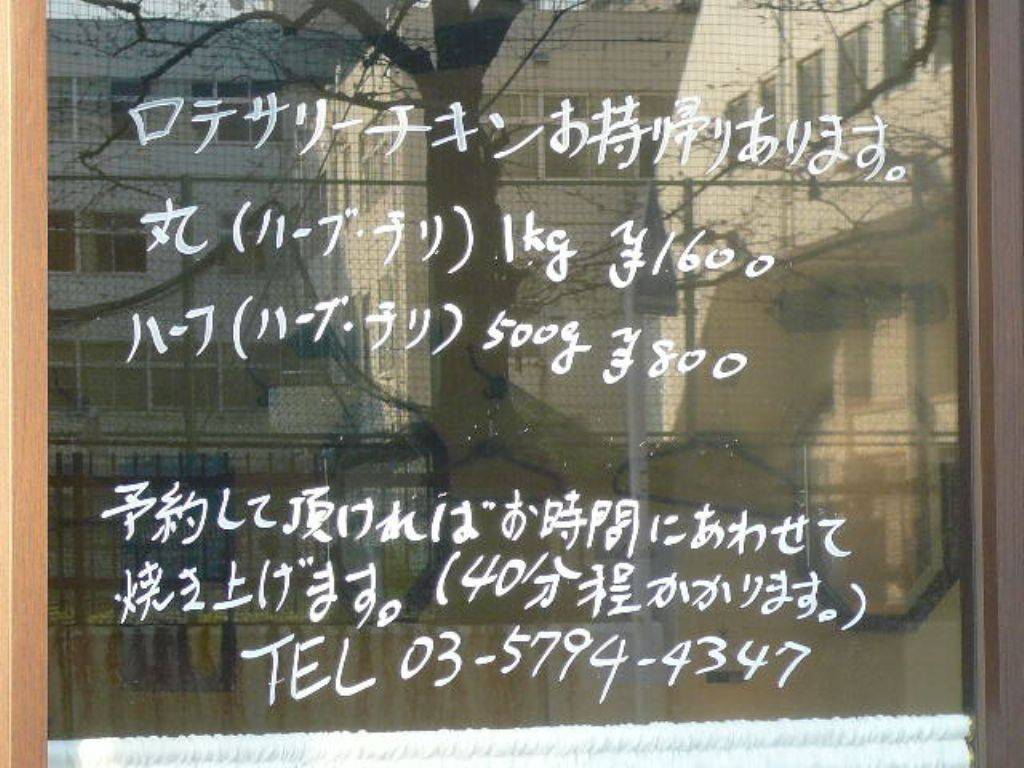 ロテサリーチキンお持帰りあります。
丸(ハーブ・チリ) 1kg ¥1600
ハーフ(ハーブ・チリ) 500g ¥800
予約して頂ければお時間にあわせて
焼き上げます。(40分程かかります。)
TEL 03-5794-4347